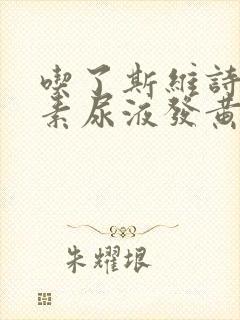 喫了斯維詩
素尿液發黃
朱耀垠